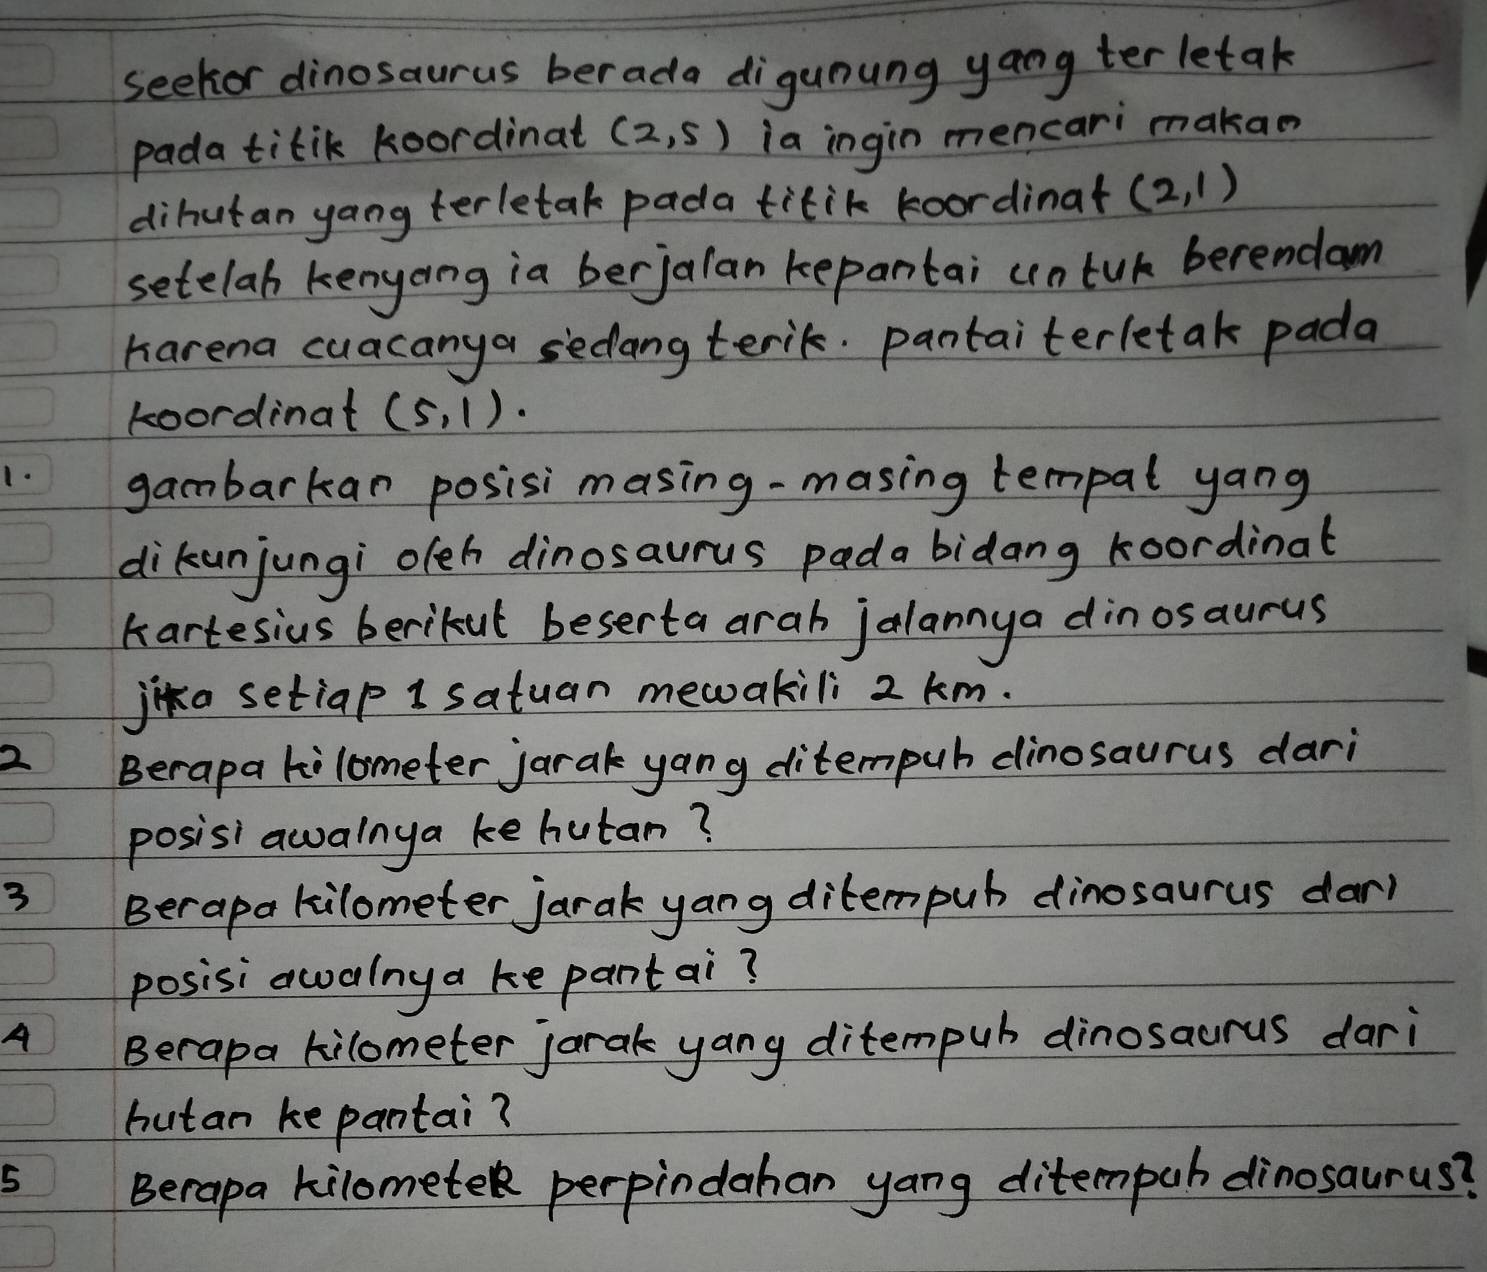 seekor dinosaurus berada digunung yang terletak
pada titik koordinat (2,5) ia ingin mencari makan
dihutan yang terletak pada titik koordinat (2,1)
setelah kenyang ia berjalan kepantai untuk berendam
karena cuacanya sedang terik. pantai terletak pada
koordinat (5,1).
1. gambarkan posisi masing-masing tempat yang
dikunjungi oleh dinosaurus pada bidang koordinat
kartesius berikut beserta arah jalannya dinosaurus
jika setiap 1 satuan mewakili 2 km.
2 Berapa kilometer jarak yang ditempuh dinosaurus dari
posisi awalnya ke hutan?
3 Berapa kilometer jarak yang ditempuh dinosaurus dari
posisi awalnya ke pantai?
4 Berapa kilometer jarak yang ditempuh dinosaurus dari
hutan ke pantai?
5 Berapa kilometer perpindahan yang ditempuh dinosaurus?